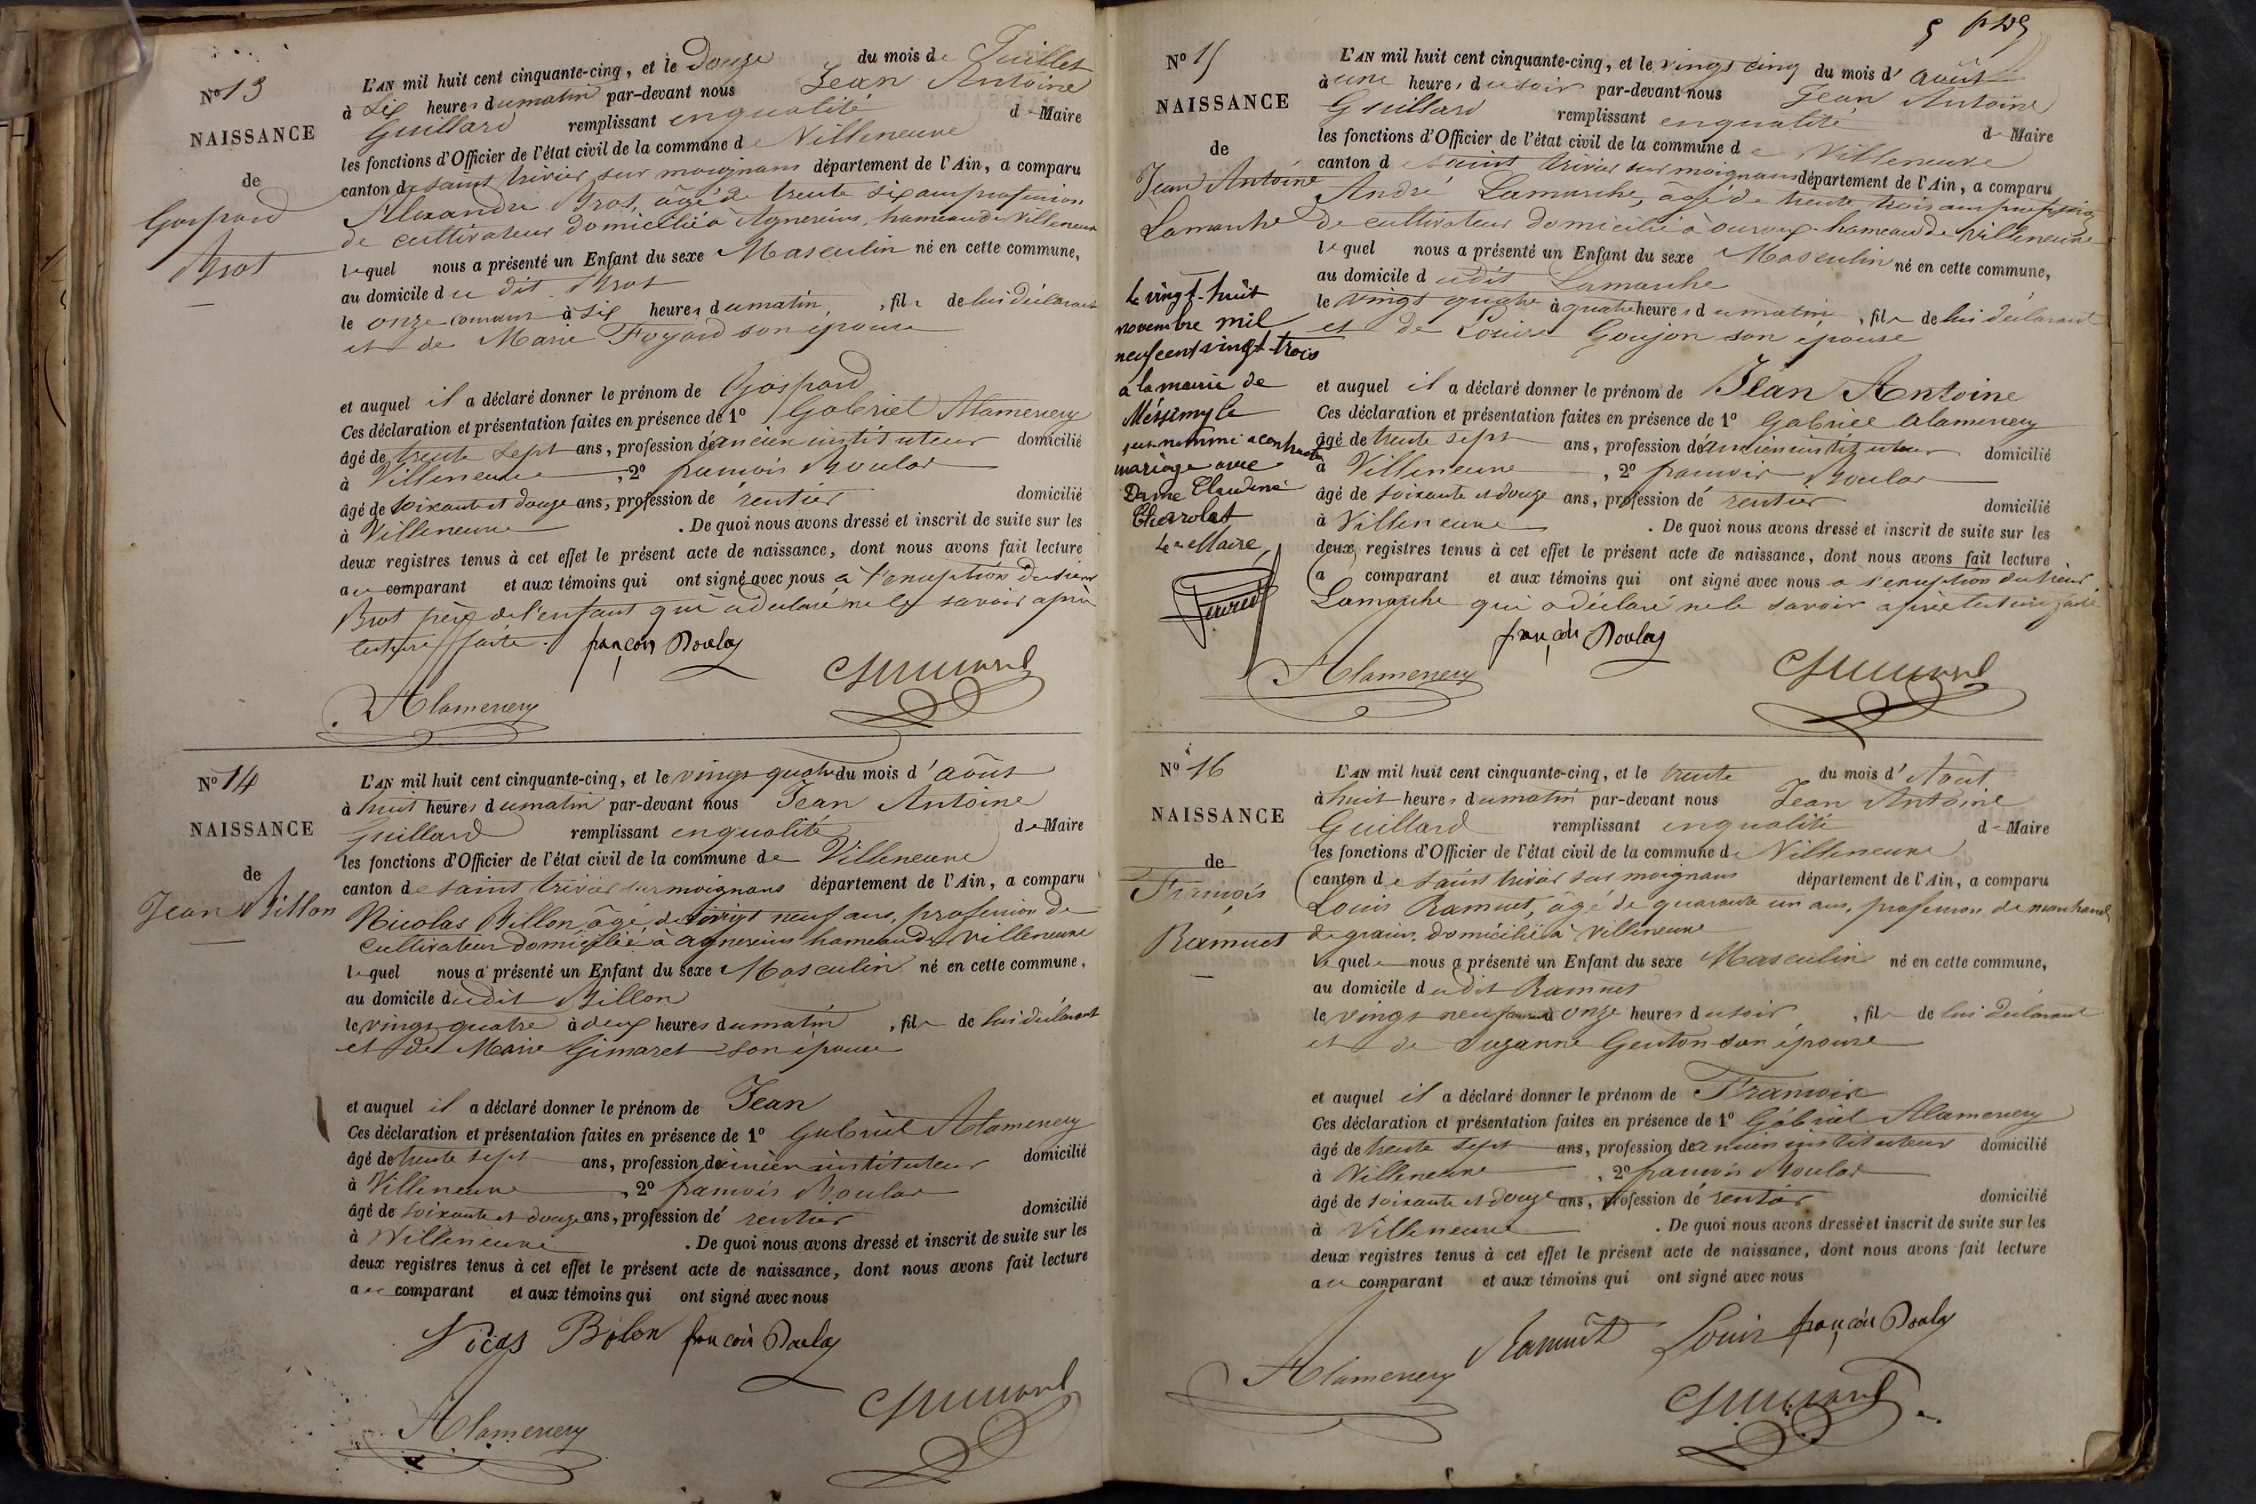 Nº 13
NAISSANCE
de
Gaspard
Brot
L'AN mil huit cent cinquante-cinq, et le Douze du mois de Juillet
à Six heures du matin par-devant nous Jean Antoine
Guillard remplissant en qualité de Maire
les fonctions d'Officier de l'état civil de la commune de Villeneuve
canton de saint trivier sur moignans département de l'Ain, a comparu
Alexandre Brot, âgé de trente six ans profession
de cultivateur domicilié à Agnereins, hameau de Villeneuve
lequel nous a présenté un Enfant du sexe Masculin né en cette commune,
au domicile du dit Brot
le onze courant à Six heures du matin, fils de lui déclarant
et de Marie Foyard son épouse
et auquel il a déclaré donner le prénom de Gaspard
Ces déclaration et présentation faites en présence de 1º Gabriel Alamercery
âgé de trente sept ans, profession d'ancien instituteur domicilié
à Villeneuve, 2º francois Boulas
âgé de soixante et douze ans, profession de rentier domicilié
à Villeneuve. De quoi nous avons dressé et inscrit de suite sur les
deux registres tenus à cet effet le présent acte de naissance, dont nous avons fait lecture
au comparant et aux témoins qui ont signé avec nous a l'exception du sieur
Brot père de l'enfant qui a déclaré ne le savoir après
lecture faite.
françois Boulas
Guillard
Alamercery
Nº 14
NAISSANCE
de
Jean Billon
L'AN mil huit cent cinquante-cinq, et le vingt quatre du mois d'août
à huit heures du matin par-devant nous Jean Antoine
Guillard remplissant en qualité de Maire
les fonctions d'Officier de l'état civil de la commune de Villeneuve
canton de saint trivier sur moignans département de l'Ain, a comparu
Nicolas Billon, âgé de vingt neuf ans, profession de
cultivateur domicilié à agnereins hameau de Villeneuve
lequel nous a présenté un Enfant du sexe Masculin né en cette commune,
au domicile dudit Billon
le vingt quatre à deux heures du matin, fils de lui déclarant
et de Marie Gimaret son épouse
et auquel il a déclaré donner le prénom de Jean
Ces déclaration et présentation faites en présence de 1º Gabriel Alamercery
âgé de trente sept ans, profession d'ancien instituteur domicilié
à Villeneuve, 2º francois Boulas
âgé de soixante et douze ans, profession de rentier domicilié
à Villeneuve. De quoi nous avons dressé et inscrit de suite sur les
deux registres tenus à cet effet le présent acte de naissance, dont nous avons fait lecture
au comparant et aux témoins qui ont signé avec nous
Bilon françois Boulas
Guillard
Alamercery
Nº 15
NAISSANCE
de
Jean Antoine
Lamarche
Le vingt-huit
novembre mil
neuf cent vingt-trois
à la mairie de
Mézimyle
susnommé a contracté
mariage avec
Dame Claudine
Le Maire,
L'AN mil huit cent cinquante-cinq, et le vingt cinq du mois d'août
à une heure, du soir par-devant nous Jean Antoine
Guillard remplissant en qualité de Maire
les fonctions d'Officier de l'état civil de la commune de Villeneuve
canton de saint trivier sur moignans département de l'Ain, a comparu
André Lamarche, âgé de trente trois ans profession
de cultivateur domicilié à ouroux hameau de Villeneuve
lequel nous a présenté un Enfant du sexe Masculin né en cette commune,
au domicile dudit Lamarche
le vingt quatre à quatre heures du matin, fils de lui déclarant
et de Louise Goujon son épouse
et auquel il a déclaré donner le prénom de Jean Antoine
Ces déclaration et présentation faites en présence de 1º Gabriel Alamercery
âgé de trente sept ans, profession d'ancien instituteur domicilié
à Villeneuve, 2º francois Boulas
âgé de soixante et douze ans, profession de rentier domicilié
à Villeneuve. De quoi nous avons dressé et inscrit de suite sur les
deux registres tenus à cet effet le présent acte de naissance, dont nous avons fait lecture
a comparant et aux témoins qui ont signé avec nous a l'exception du sieur
Lamarche qui a déclaré ne le savoir après lecture faite
françois Boulas
Alamercery
Guillard
Nº 16
NAISSANCE
de
François
Ramuet
L'AN mil huit cent cinquante-cinq, et le trente du mois d'Août
à huit heures du matin par-devant nous Jean Antoine
Guillard remplissant en qualité de Maire
les fonctions d'Officier de l'état civil de la commune de Villeneuve
canton de saint trivier sur moignans département de l'Ain, a comparu
Louis Ramuet, âgé de quarante un ans, profession de marchand
de grains, domicilié à Villeneuve
lequel nous a présenté un Enfant du sexe Masculin né en cette commune,
au domicile dudit Ramuet
le vingt neuf courant à onze heures du soir, fils de lui déclarant
et de Suzanne Genton son épouse
et auquel il a déclaré donner le prénom de Francois
Ces déclaration et présentation faites en présence de 1º Gabriel Alamercery
âgé de trente sept ans, profession d'ancien instituteur domicilié
à Villeneuve, 2º francois Boulas
âgé de soixante et douze ans, profession de rentier domicilié
à Villeneuve. De quoi nous avons dressé et inscrit de suite sur les
deux registres tenus à cet effet le présent acte de naissance, dont nous avons fait lecture
au comparant et aux témoins qui ont signé avec nous
Ramuet Louis françois Boulas
Alamercery
Guillard